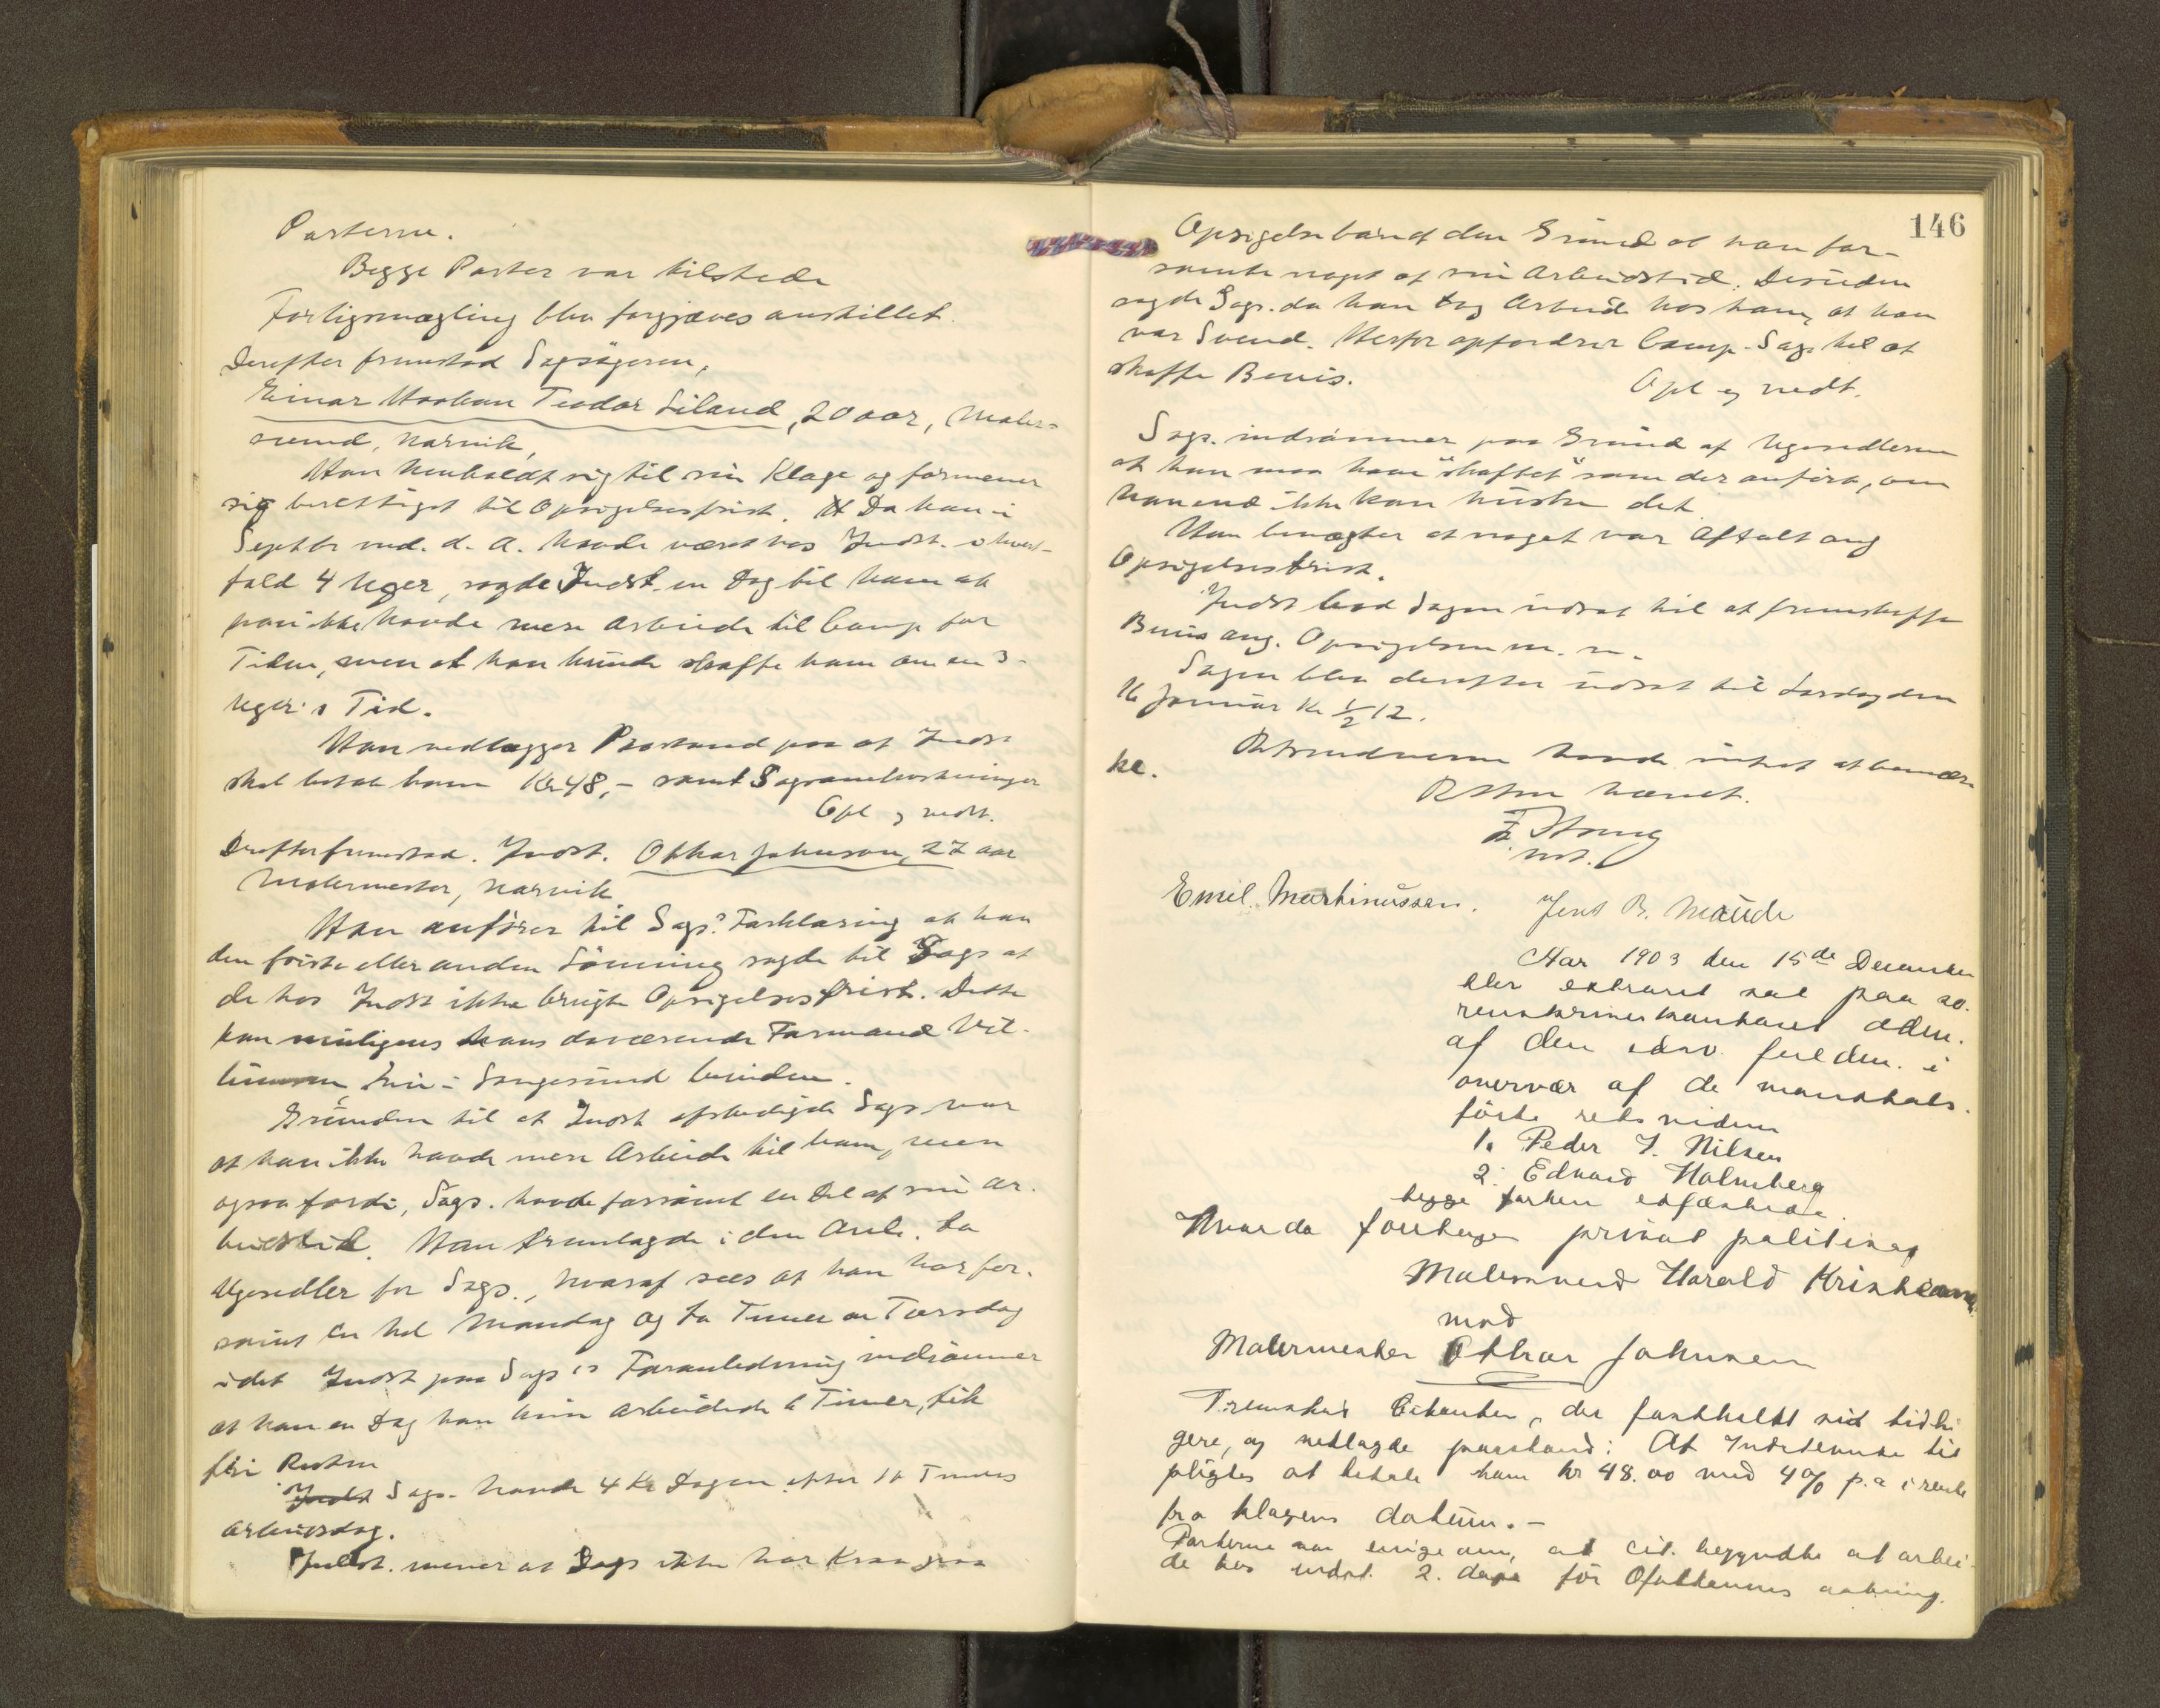 Parterne.
Begge Parter var tilstede
Forligsmægling blev forgjæves anstillet.
Derefter fremstod Sagsøgeren,
Einar Haakon Teodor Siland, 20 aar, Maler-
svend, Narvik,
Han henholdt sig til sin Klage og formener
sig berettiget til Opsigelsesfrist. Da han i
Septbr md. d. A. havde været hos Indst. i hvert-
fald 4 Uger, sagde Indst. en Dag til ham at
han ikke havde mere Arbeide til Comp for
Tiden, men at han kunde skaffe ham om en 3-
Uger's Tid.
Han nedlægger Paastand paa at Indst
skal betale ham Kr 48,- samt Sagsomkostninger
Opl og vedt.
Derefter fremstod. Indst. Othar Johnson, 27 aar
Malermester, Narvik
Han anfører til Sags. Forklaring at han
den første eller anden Lønning sagde til Sags at
de hos Indst ikke brugte Opsigelsesfrist. Dette
kan muligens hans daværende Formand
i Langesund bevidne.
Grunden til at Indst afskedigede Sags var
at han ikke havde mere Arbeide til ham, men
ogsaa fordi, Sags. havde forsømt en Del af sin Ar-
beidstid. Han fremlagde i den Anl. to
Ugesedler for Sags., hvoraf sees at han har for-
sømt en hel Mandag og to Timer en Torsdag
idet Indst paa Sags's Foranledning indrømmer
at han en Dag han kun arbeidede 6 Timer, fik
fri Resten
Indst Sags. havde 4 Kr Dagen efter 10 Timers
Arbeidsdag.
Indst. mener at Sags ikke har Krav paa
146
Opsigelse baaret den Grund at han for-
sømte noget af sin Arbeidstid. Desuden
sagde Sags. da han tog Arbeide hos ham, at han
var Svend. Herfor opfordrer Comp. Sags til at
skaffe Bevis.
Opl og vedt.
Sags. indrømmer paa Grund af Ugesedlerne
at han maa have "skoftet" som der anført, om
han end ikke kan huske det.
Han benægter at noget var Aftalt ang
Opsigelsesfrist.
Indst bad Sagen udsat til at fremskaffe
Bevis ang. Opsigelsen m. v.
Sagen blev derefter udsat til Lørdag den
16 Januar Kl ½12.
Retsvidnerne havde intet at bemær-
ke.
Retten hævet.
Emil Martinussen. Jens B. Maude
Aar 1903 den 15de December
blev extraret sat paa so-
renskriverkontoret
af den edsv. fuldm. i
overvær af de mandtals-
førte retsvidner
1. Peder J. Nilsen
2. Edvard Holmberg
begge forhen edfæstede.
Hvorda foretoges privat politisag
Malersvend Harald Kristians
mod
Malermester Othar Johnsen
Fremstod Citanten, der fastholdt sit tidli-
gere, og nedlagde paastand: At Indstevnte til
pligtes at betale ham kr 48.00 med 4% p.a i rente
fra klagens datum. -
Parterne var enige om, at cit. begyndte at arbei-
de hos indst. 2. dage før Ofotbanens aabning.